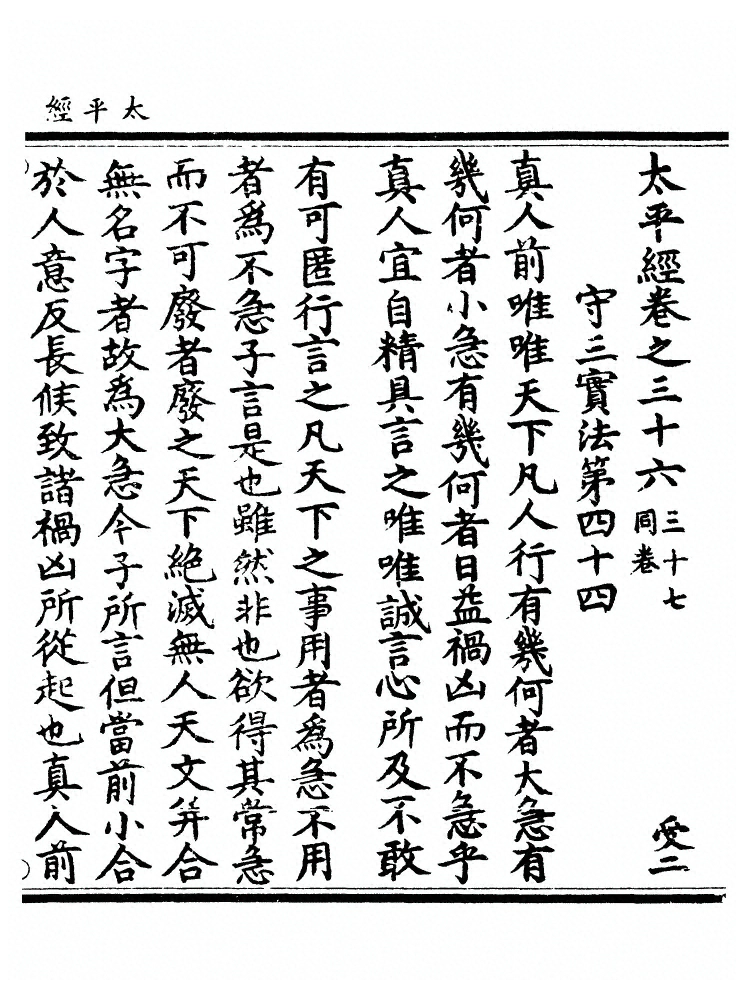 太平經
太平經卷之三十六 三十七同卷 受二
守三實法第四十四
真人前唯唯天下凡人行有幾何者大急有
幾何者小急有幾何者日益禍凶而不急乎
真人宜自精具言之唯唯誠言心所及不敢
有可匿行言之凡天下之事用者為急不用
者為不急子言是也雖然非也欲得其常急
而不可廢者廢之天下絕滅無人天文并合
無名字者故為大急今子所言但當前小合
於人意反長候致諸禍凶所從起也真人前